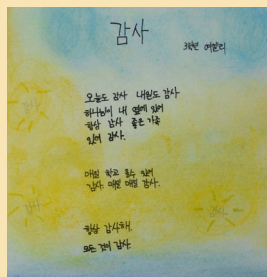 감사
3학년 여한리
오늘도 감사 내일도 감사
하나님이 내 옆에 있어
항상 감사 좋은 가족
있어 감사.
매일 학교 올수 있어
감사 매일 매일 감사.
항상 감사해
모든 것이 감사.